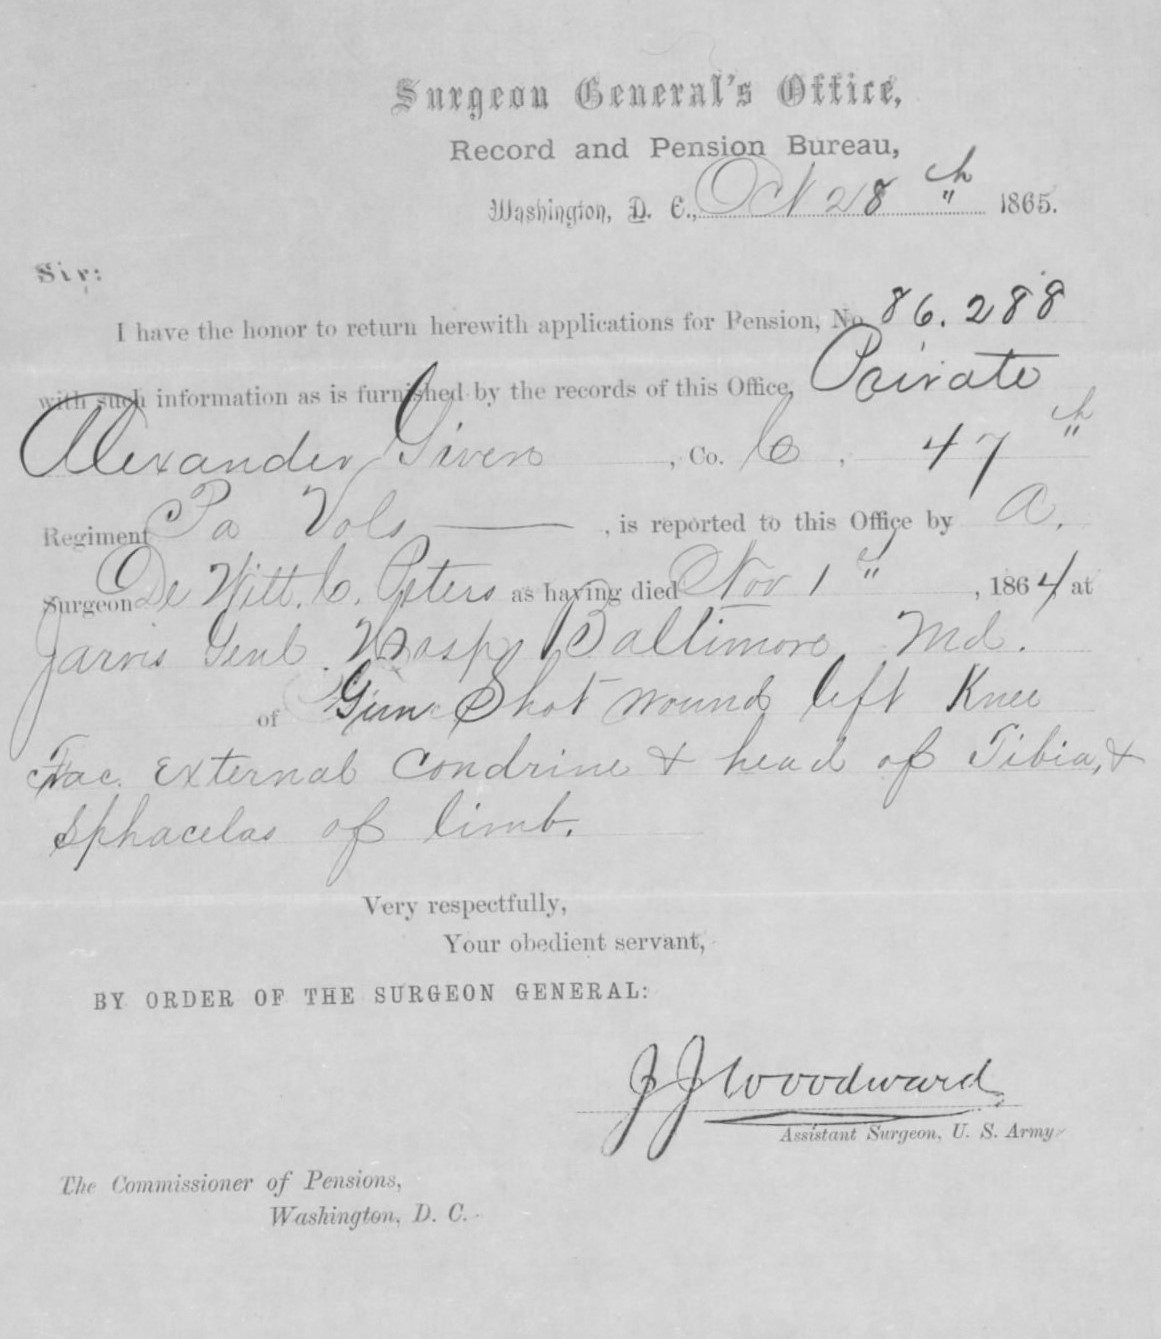 Surgeon General's Office,
Record and Pension Bureau,
Washington, D. C., Oct 28th 1865.
Sir:
I have the honor to return herewith applications for Pension, No. 86.288
with such information as is furnished by the records of this Office, Private
Alexander Given, Co. C, 47th
Regiment Pa Vols, is reported to this Office by A.
Surgeon De Witt. C. Peters as having died Nov 1", 1864 at
Jarvis Genl. Hosp. Baltimore Md.
of Gun Shot wound left Knee
Frac. External Condrine & head of Tibia, &
Sphacelas of limb.
Very respectfully,
Your obedient servant,
BY ORDER OF THE SURGEON GENERAL:
J J Woodward
Assistant Surgeon, U. S. Army
The Commissioner of Pensions,
Washington, D. C.